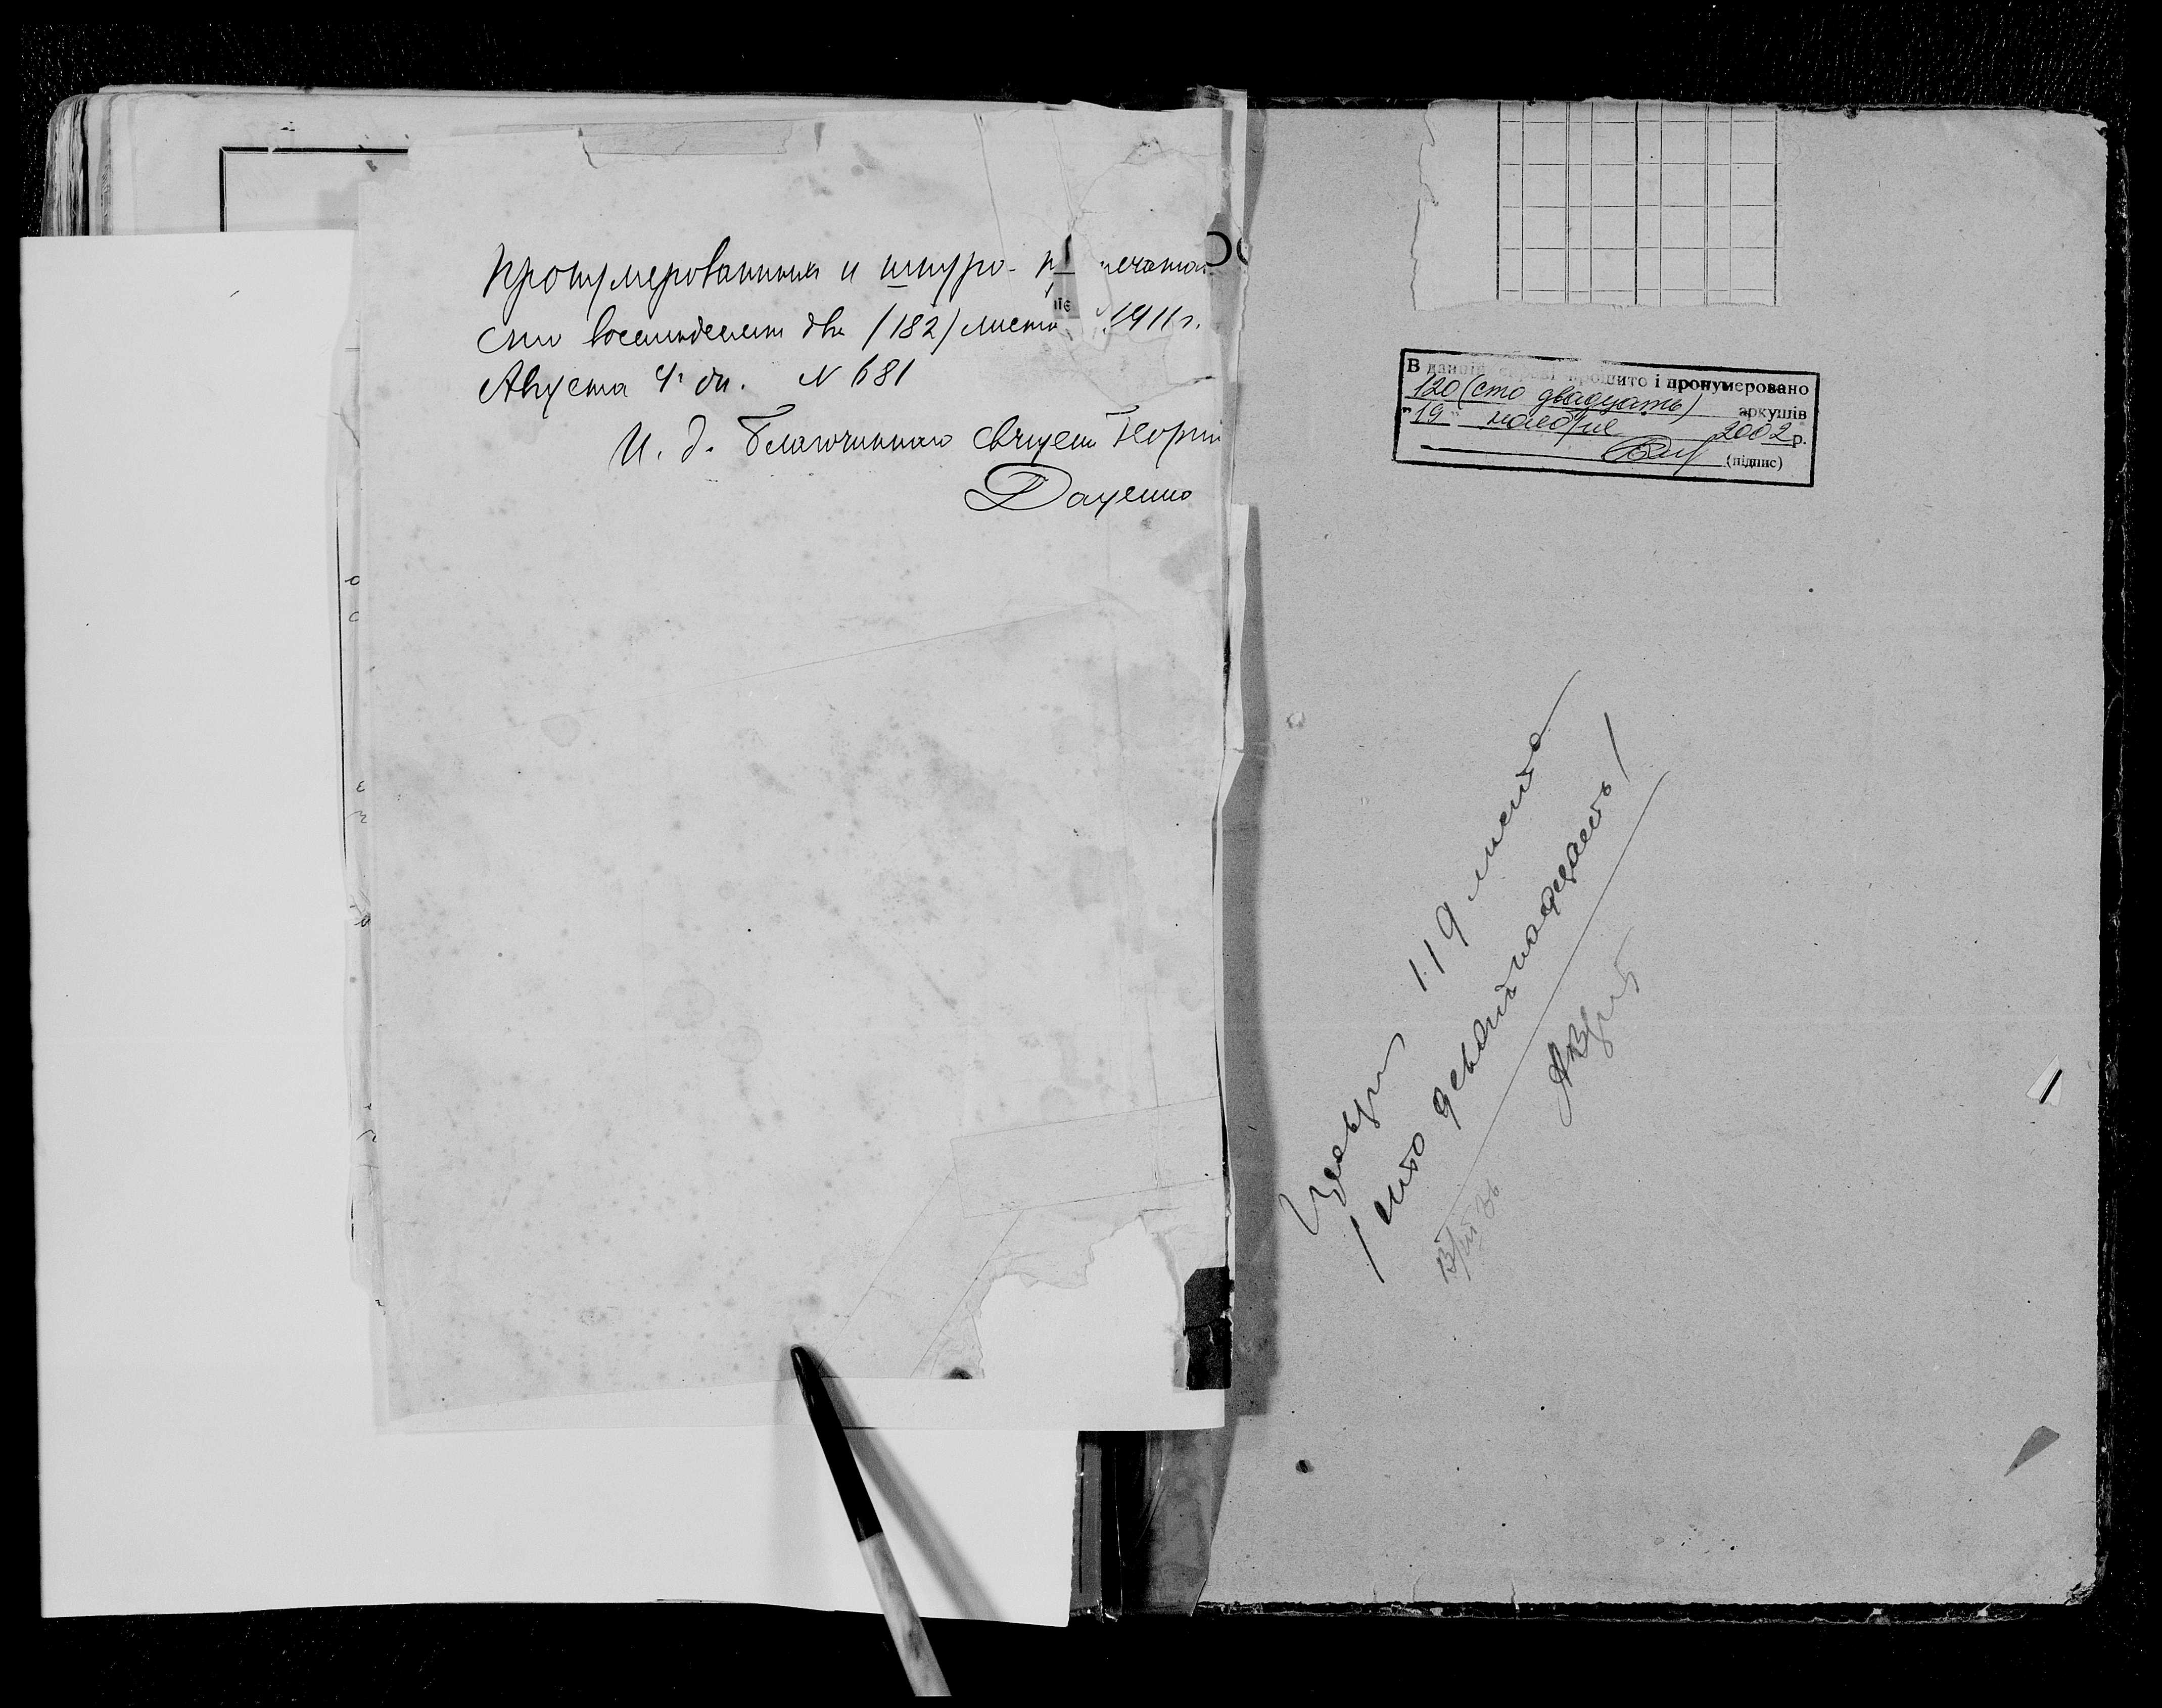 Пронумерованныхъ и шнуро- п печатан
сто восемьдесятъ два /182/ листа 1911 г.
Августа 4 дн. N 681
И. д. Благочиннаго Священ Георгій
Даценко
В даній справі прошито і пронумеровано
120 (сто двадцать) аркушів
"19" ноября 2002 р.
(підпис)
119 листов
/сто девятнадцать/